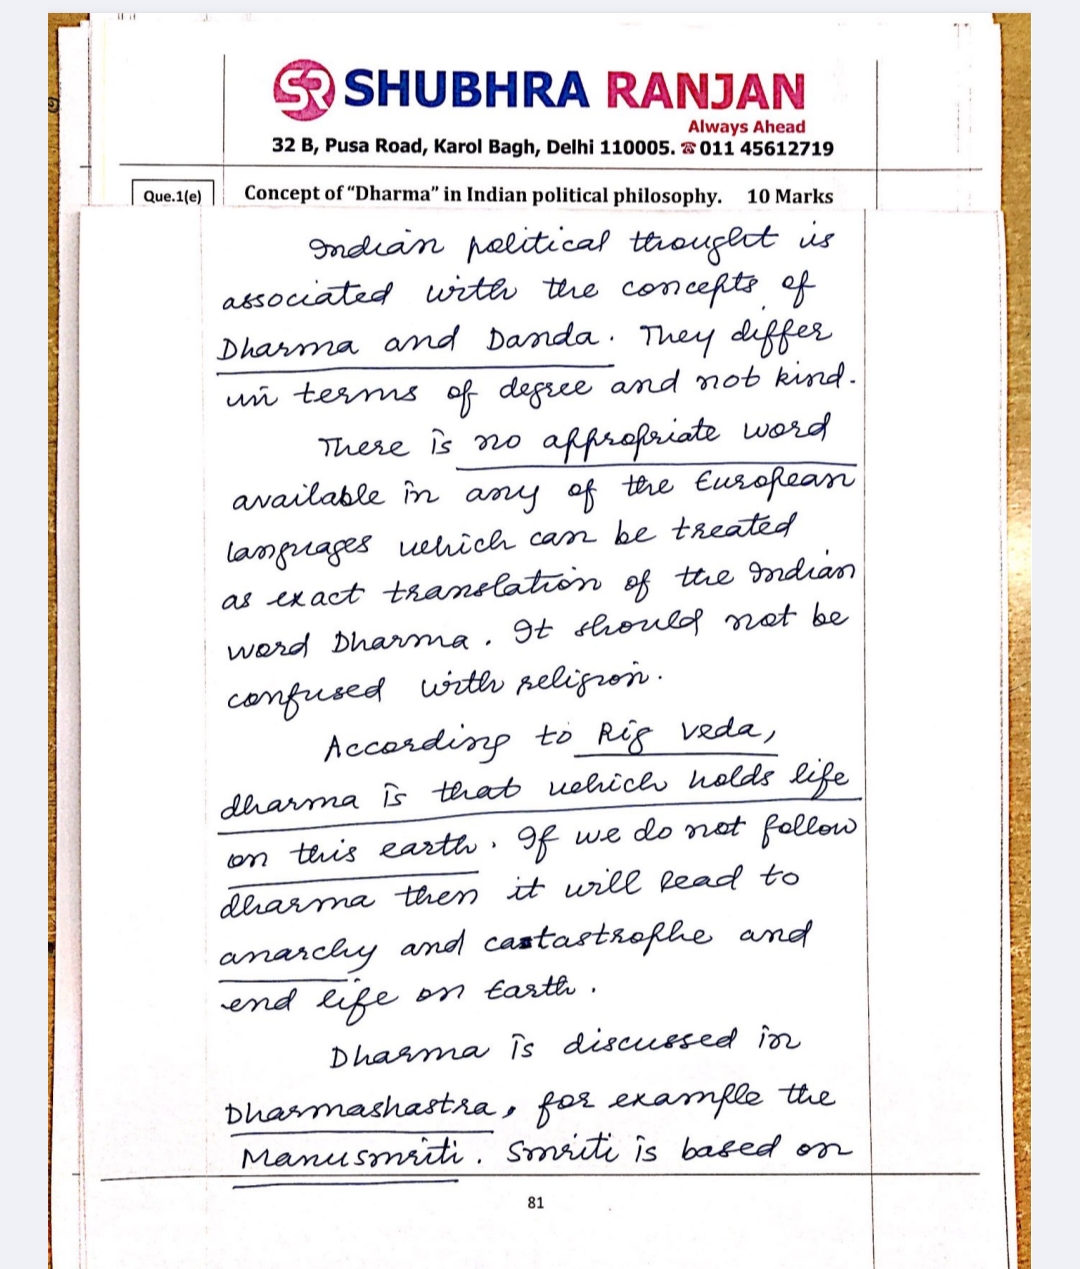 SR SHUBHRA RANJAN
Always Ahead
32 B, Pusa Road, Karol Bagh, Delhi 110005. ☎ 011 45612719
Que.1(e) Concept of "Dharma" in Indian political philosophy. 10 Marks
Indian political thought is
associated with the concepts of
Dharma and Danda. They differ
in terms of degree and not kind.
There is no appropriate word
available in any of the European
languages which can be treated
as exact translation of the Indian
word Dharma. It should not be
confused with religion.
According to Rig veda,
dharma is that which holds life
on this earth. If we do not follow
dharma then it will lead to
anarchy and castastrophe and
end life on Earth.
Dharma is discussed in
Dharmashastra, for example the
Manusmriti. Smriti is based on
81